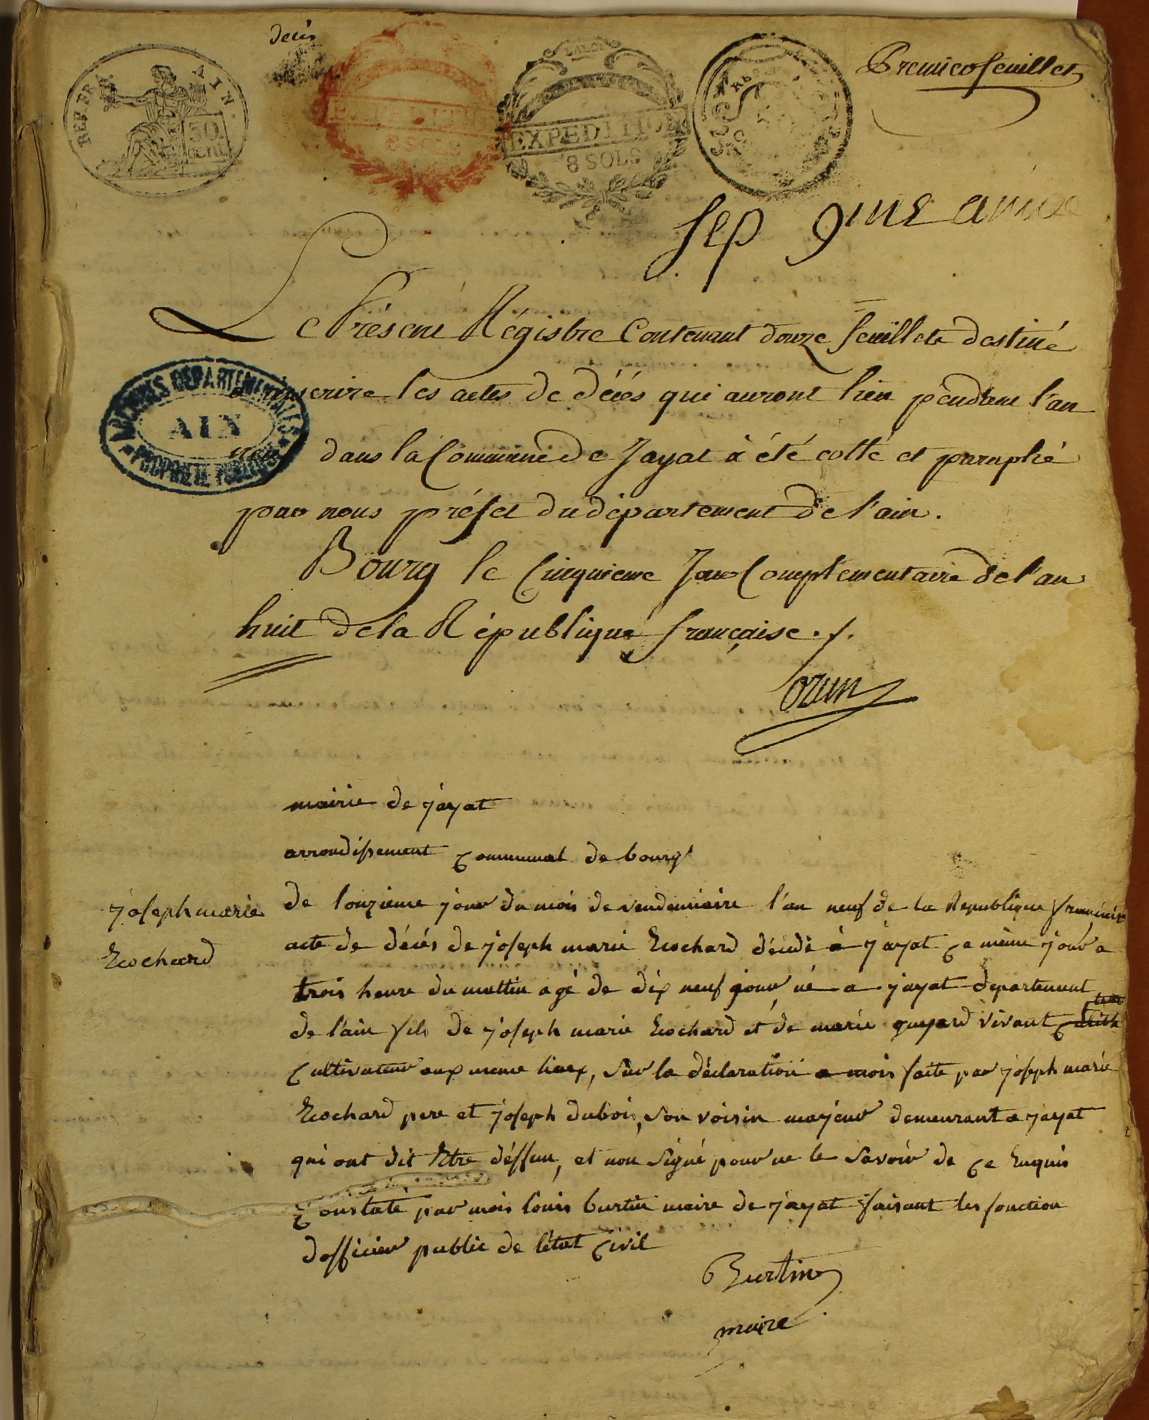 décés
REP. FRA. AIN.
50 CENT
EXPEDITION
8 SOLS
Premier feuillet
9me année
Le Présent Régistre Contenant douze feuillets destiné
ARCHIVES DEPARTEMENTALES
AIN
PROPRIETE PUBLIQUE
inscrire les actes de décés qui auront lieu pendant l'an
dans la Commune de Jayat à été cotté et paraphé
par nous préfet du département de l'ain.
Bourg le Cinquieme Jour Complementaire de l'an
huit de la République française ./.
mairie de jayat
arrondissement communal de bourg
joseph marie
Ecochard
de l'onzieme jour du mois de vendemiaire l'an neuf de la Republique francaise
acte de décés de joseph marie Ecochard décédé à jayat ce même jour a
trois heure du mattin agé de dix neuf jour né a jayat departement
de l'ain fils de joseph marie Ecochard et de marie guyard vivant
cultivateur aux meme lieux, sur la déclaration a mois faite par joseph marie
Ecochard pere et joseph dubois, son voisin majeur demeurant a jayat
qui ont dit Etre déffun, et non signé pour ne le savoir de ce Enquis
Constaté par mois louis burtin maire de jayat faisant les fonction
dofficier public de létat civil
Burtin
maire